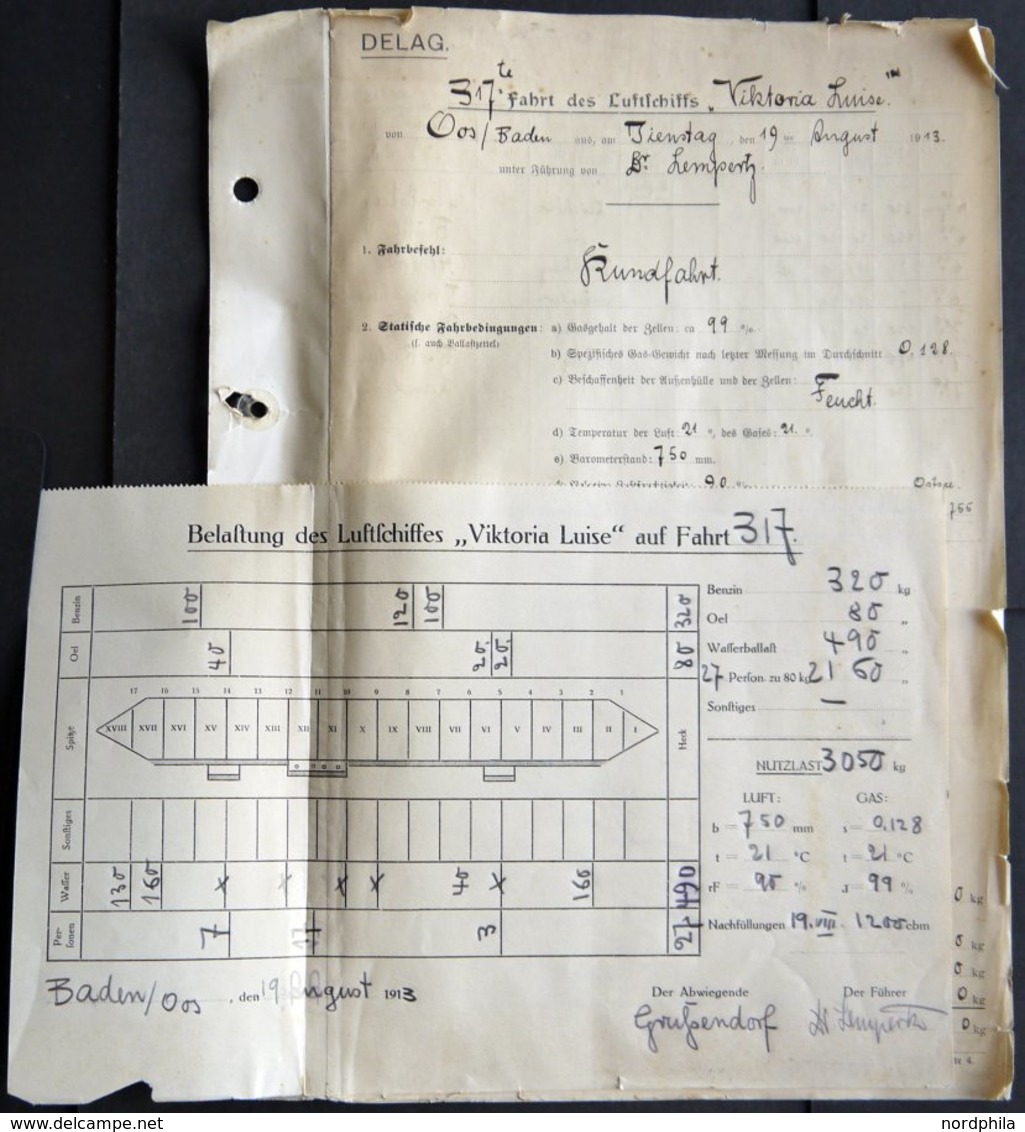 DELAG.
317te Fahrt des Luftschiffs „Viktoria Luise"
von Oos/Baden aus, am Dienstag, den 19ten August 1913.
unter Führung von Dr. Lempertz.
1. Fahrbefehl:
Rundfahrt.
2. Statische Fahrbedingungen: a) Gasgehalt der Zellen: ca 99 %.
(s. auch Ballastzettel)
b) Spezifisches Gas-Gewicht nach letzter Messung im Durchschnitt 0,128.
c) Beschaffenheit der Außenhülle und der Zellen:
Feucht.
d) Temperatur der Luft: 21 °, des Gases: 21. °.
e) Barometerstand: 750 mm.
90 %
755
Belastung des Luftschiffes „Viktoria Luise“ auf Fahrt 317.
Benzin 100 120 100 320
Oel 40 20. 20. 80
17 16 15 14 13 12 11 10 9 8 7 6 5 4 3 2 1
Spitze XVIII XVII XVI XV XIV XIII XII XI X IX VIII VII VI V IV III II I Heck
Sonstiges
Wasser 130 160 x x x x 40 x 160 490
Personen 7 17 3 27
Benzin 320 kg
Oel 80 „
Wasserballast 490 „
27 Person. zu 80 kg 2160 „
Sonstiges —
NUTZLAST 3050 kg
LUFT: GAS:
b = 750 mm s = 0,128
t = 21 °C t = 21 °C
rF = 90 % J = 99 %
Nachfüllungen 19. VIII. 1200 cbm
Baden/Oos, den 19 August 1913
Der Abwiegende Der Führer
Grussendorf Dr Lempertz
0 kg
0 kg
0 kg
0 kg
0 kg
nordphila